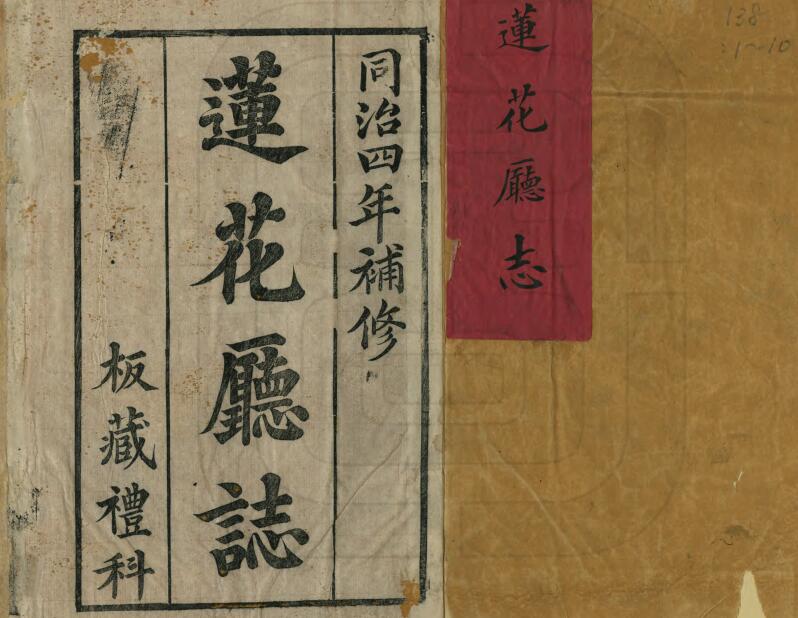 蓮花廳志
138
:1~10
同治四年補修
蓮花廳誌
板藏禮科